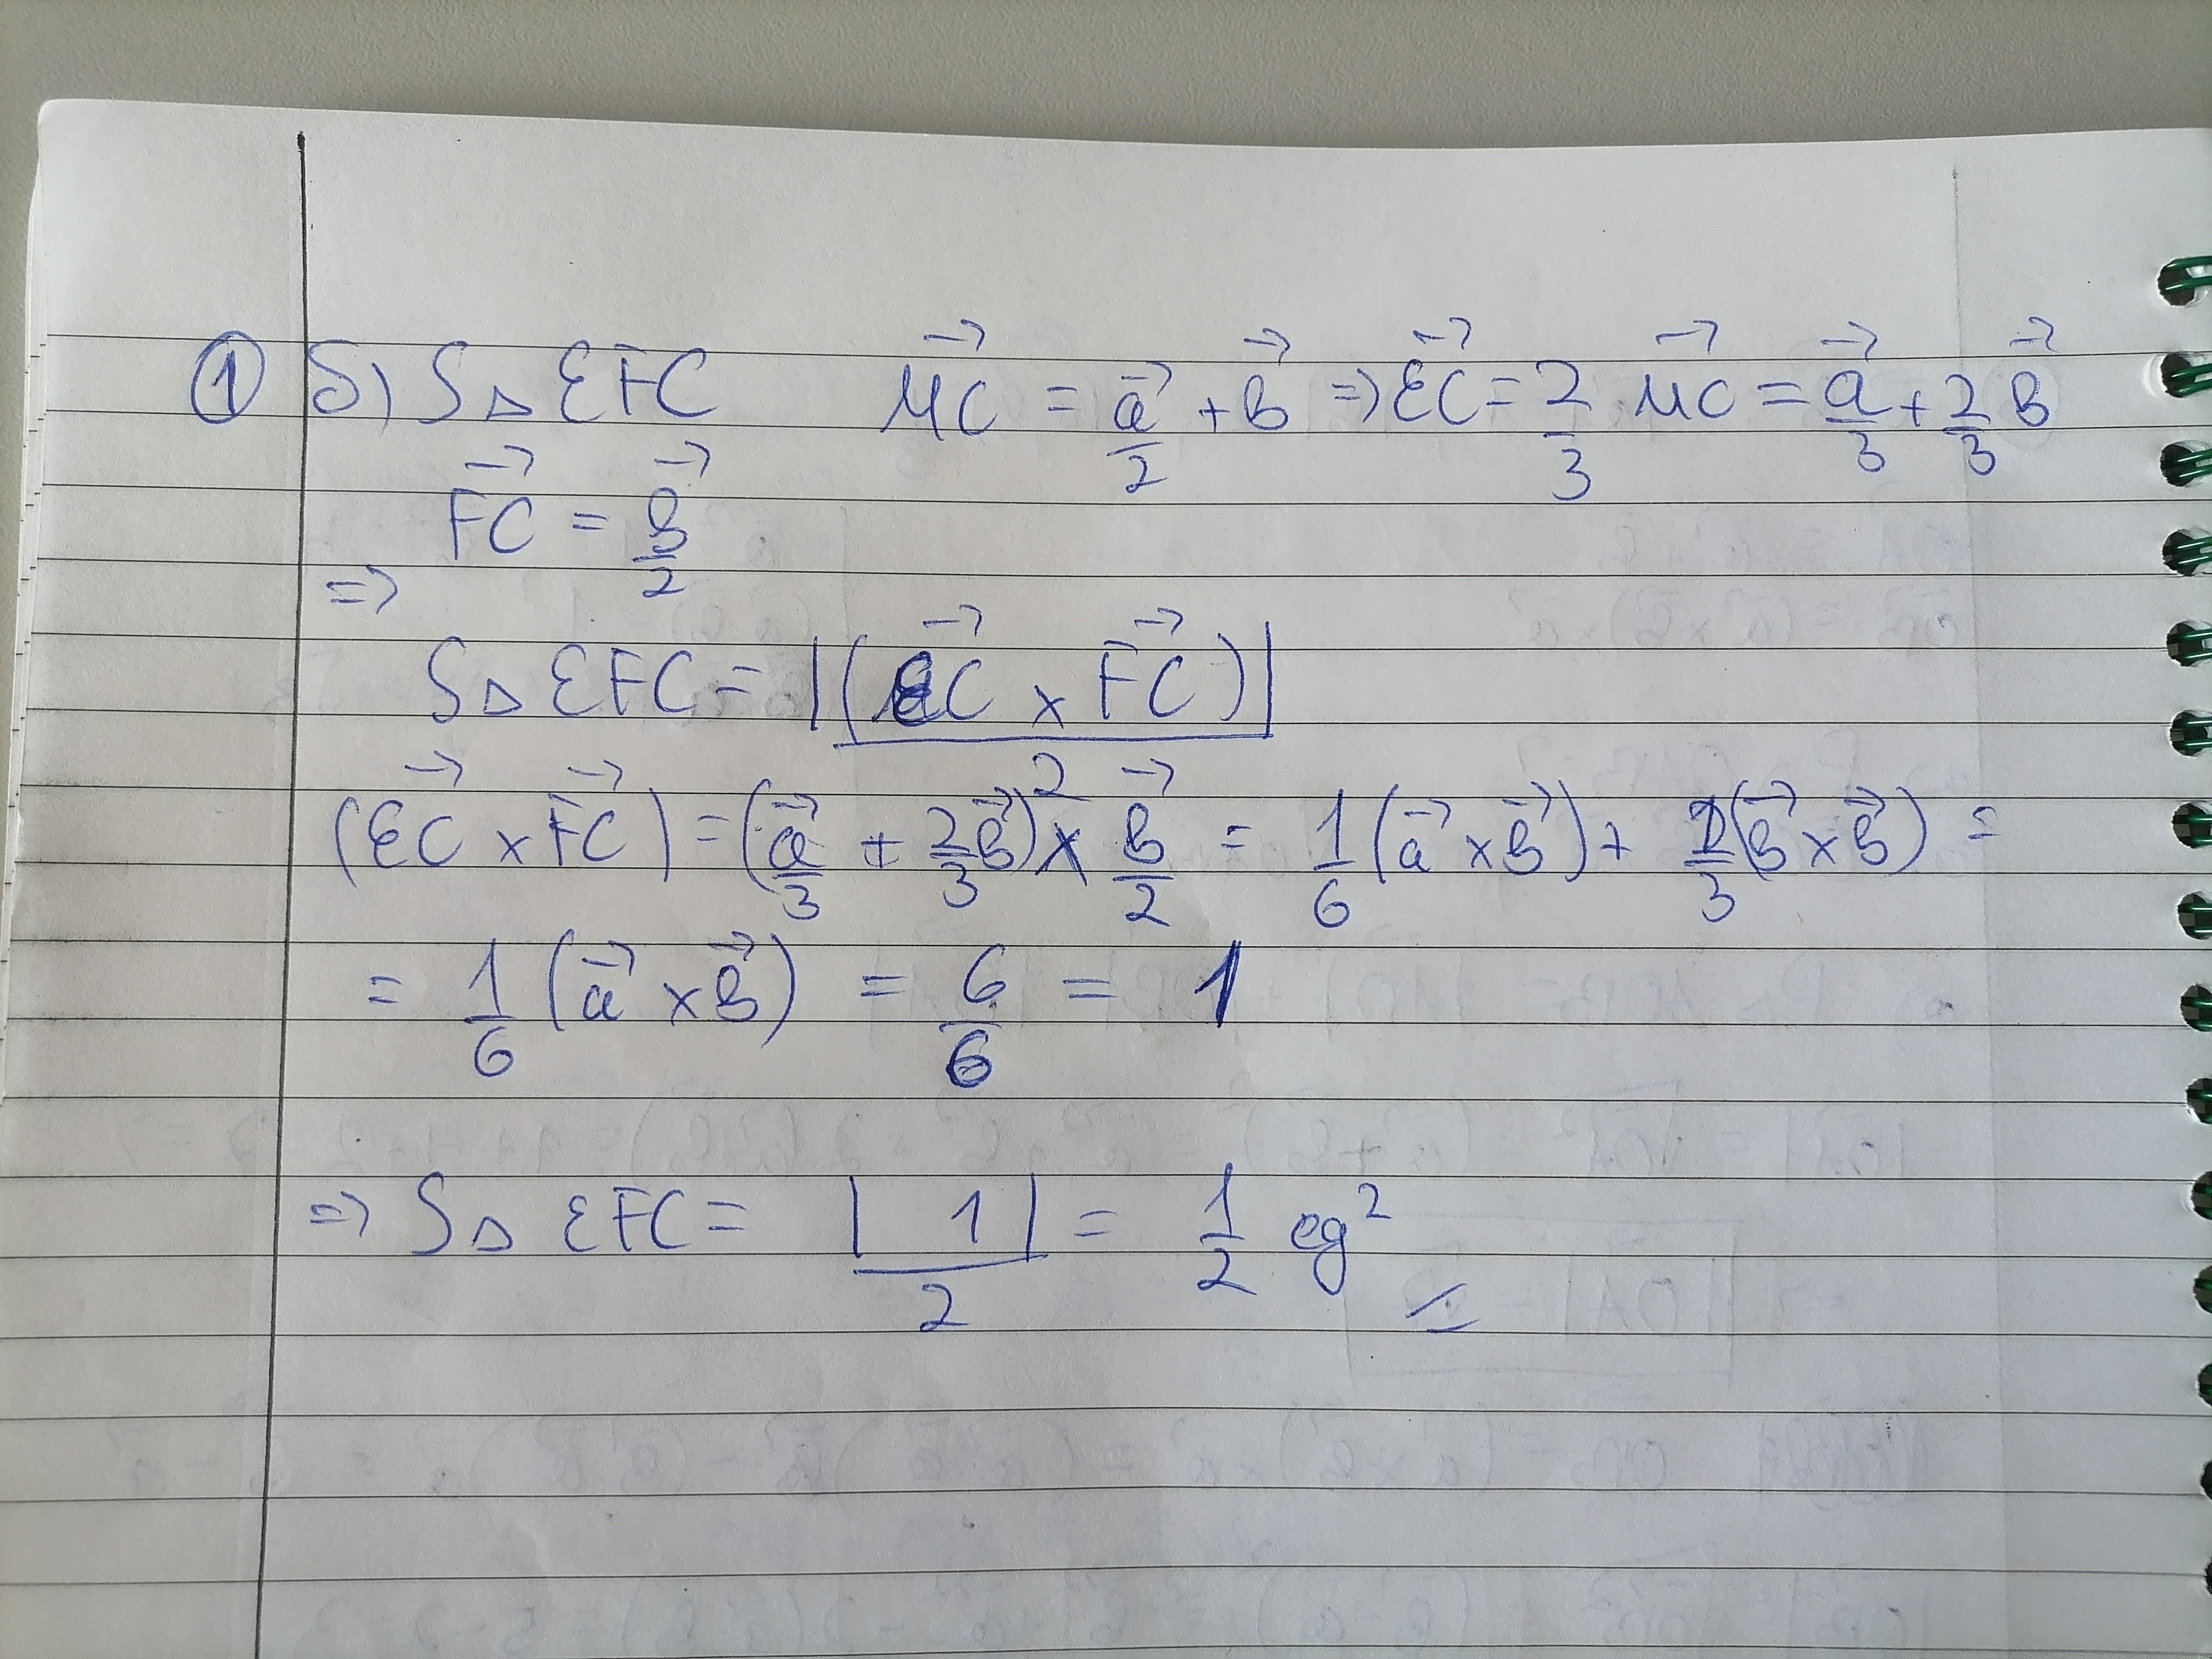 ① б) S△EFC    MC⃗ = a⃗/2 + b⃗ ⇒ EC⃗ = 2/3 MC⃗ = a⃗/3 + 2/3 b⃗
FC⃗ = b⃗/2
⇒
S△EFC = |(EC⃗ × FC⃗)|/2
(EC⃗ × FC⃗) = (a⃗/3 + 2/3 b⃗) × b⃗/2 = 1/6 (a⃗ × b⃗) + 1/3 (b⃗ × b⃗) =
= 1/6 (a⃗ × b⃗) = 6/6 = 1
⇒ S△EFC = |1|/2 = 1/2 eg²